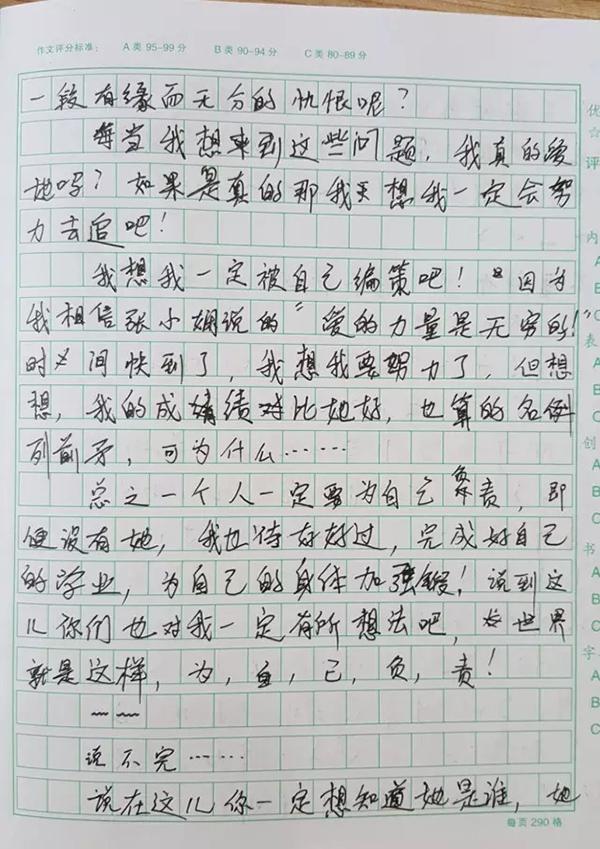 作文评分标准： A类 95-99分 B类 90-94分 C类 80-89分
一段有缘而无分的仇恨呢？
每当我想来到这些问题，我真的爱
她吗？如果是真的那我想我一定会努
力去追吧！
我想我一定被自己编策吧！因为
我相信张小娴说的“爱的力量是无穷的！”
时间快到了，我想我要努力了，但想
想，我的成绩对比她好，也算的名例
列前矛，可为什么……
总之一个人一定要为自己负责，即
便没有她，我也待好好过，完成好自己
的学业，为自己的身体加强锻！说到这
儿你们也对我一定有所想法吧，世界
就是这样，为，自，己，负，责！
说不完……
说在这儿你一定想知道她是谁，她
每页290格
优
☆
评
内
A
B
C
表
A
B
C
创
A
B
C
书
A
B
C
字
A
B
C